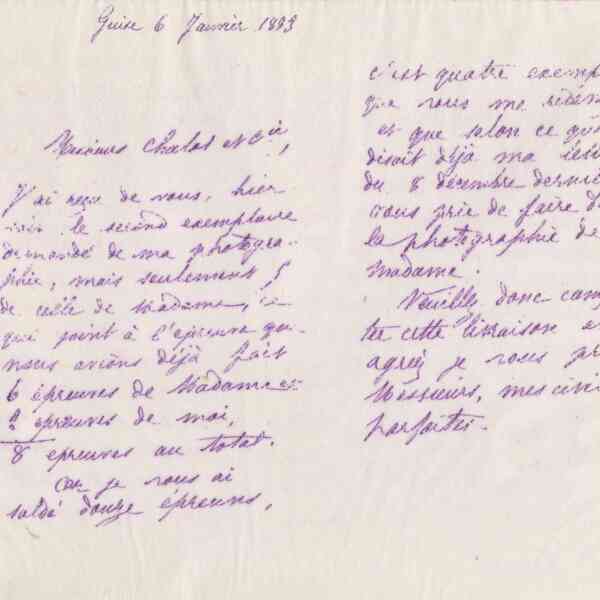 Guise 6 Janvier 1883
Messieurs Chalot et Cie,
J'ai reçu de vous, hier
soir le second exemplaire
demandé de ma photogra-
phie, mais seulement 5
de celle de Madame, ce
qui joint à l'épreuve que
nous avions déjà fait
6 épreuves de Madame et
2 épreuves de moi,
8 épreuves au total.
Or je vous ai
soldé douze épreuves,
c'est quatre exemp
que vous me
et que selon ce
disait déjà ma
du 8 décembre derni
vous prie de faire d
la photographie de
Madame.
Veuillez donc com
ter cette livraison
agréez je vous pr
Messieurs, mes civi
parfaites.